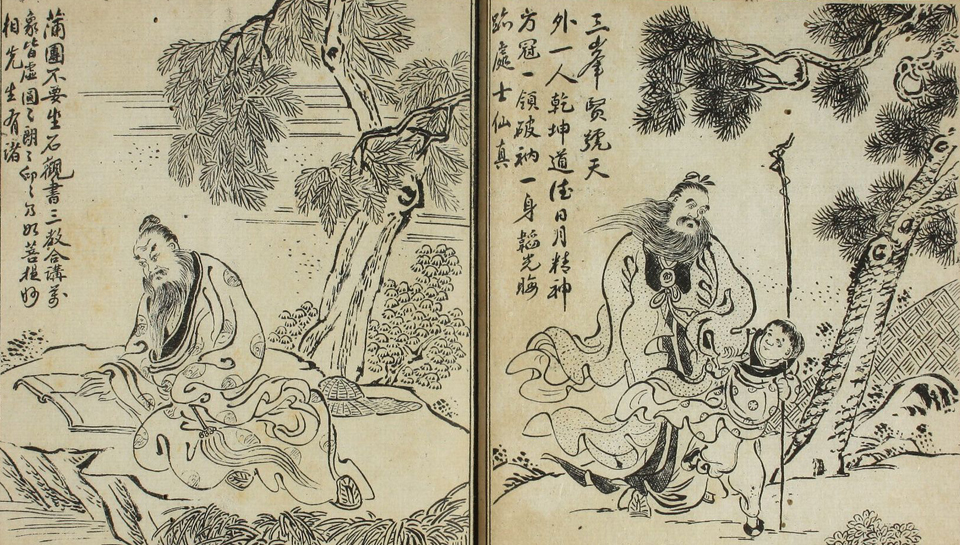 三峯賢號天
外一人乾坤道德日月精神
方冠一領破衲一身韜光晦
跡處士仙真
蒲團不要坐石觀書三教合講萬
象皆虛圓〻朗〻如菩提妙
相先生有諸